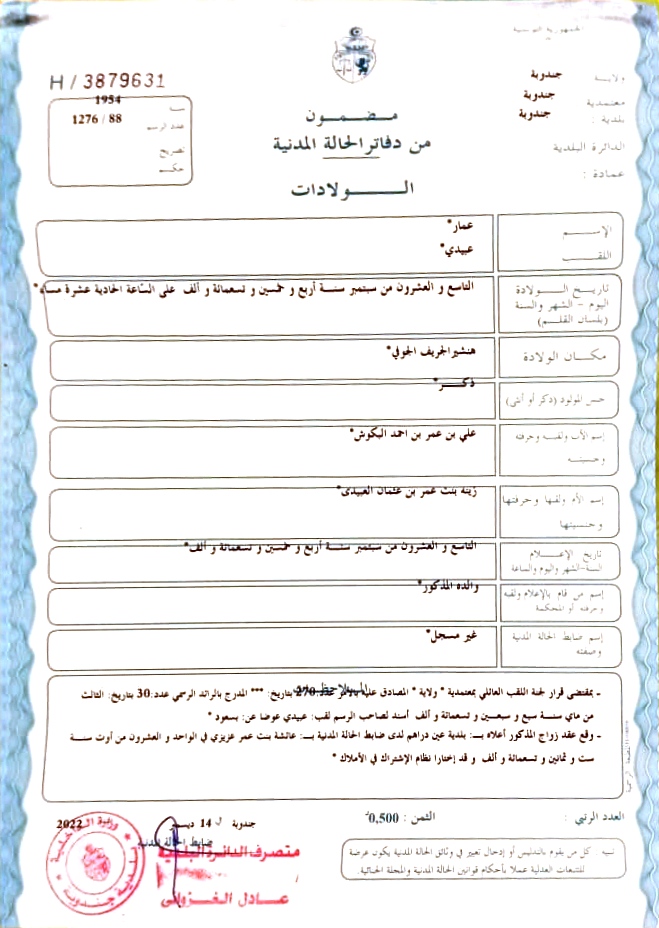 الجمهورية التونسية
ولايـة جندوبة
معتمدية جندوبة
بلدية : جندوبة
الدائرة البلدية
عمادة :
H / 3879631
سنة 1954
عدد الرسم 88 / 1276
تصريح
حكم
مضمون
من دفاتر الحالة المدنية
الـولادات
الإسم عمار*
اللقب عبيدي*
تاريخ الولادة
اليوم - الشهر والسنة
(بلسان القلم)
التاسع و العشرون من سبتمبر سنة أربع و خمسين و تسعمائة و ألف على الساعة الحادية عشرة مساء*
مكان الولادة هنشير الجريف الجوفي*
جنس المولود (ذكر أو أنثى) ذكر*
إسم الأب ولقبه وحرفته
وجنسيته
علي بن عمر بن احمد البكوش*
إسم الأم ولقبها وحرفتها
وجنسيتها
زينة بنت عمر بن عثمان العبيدي*
تاريخ الإعلام
السنة-الشهر واليوم والساعة
التاسع و العشرون من سبتمبر سنة أربع و خمسين و تسعمائة و ألف*
إسم من قام بالإعلام ولقبه
وحرفته أو المحكمة
والده المذكور*
إسم ضابط الحالة المدنية
وصفته
غير مسجل*
الملاحظات
ـ بمقتضى قرار لجنة اللقب العائلي بمعتمدية * ولاية * المصادق عليه بالأمر عدد:270 بتاريخ: *** المدرج بالرائد الرسمي عدد:30 بتاريخ: الثالث
من ماي سنة سبع و سبعين و تسعمائة و ألف أسند لصاحب الرسم لقب: عبيدي عوضا عن: بسعود *
ـ وقع عقد زواج المذكور أعلاه بـ: بلدية عين دراهم لدى ضابط الحالة المدنية بـ: عائشة بنت عمر عزيزي في الواحد و العشرون من أوت سنة
ست و ثمانين و تسعمائة و ألف و قد إختارا نظام الإشتراك في الأملاك *
العدد الرتبي :
الثمن : 0,500د
جندوبة في 14 ديسمبر 2022
ضابط الحالة المدنية
متصرف الدائرة البلدية
عادل الغزواني
وزارة الداخلية
بلدية جندوبة
تنبيه كل من يقوم بالتدليس أو إدخال تغيير في وثائق الحالة المدنية يكون عرضة
للتتبعات العدلية عملا بأحكام قوانين الحالة المدنية والمجلة الجنائية.